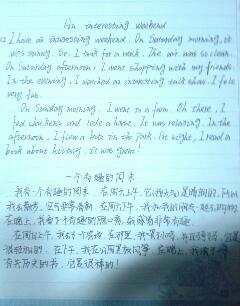 An interesting weekend
I have an interesting weekend. On Saturday morning, it
was sunny. So, I took for a walk. The air was so clean.
On Saturday afternoon, I went shopping with my friends.
In the evening, I watched an interesting talk show. I felt
very fun.
On Sunday morning, I went to a farm. On there, I
fed chickens and rode a horse. It was relaxing. In the
afternoon, I flew a kite in the park. In night, I read a
book about history. it was great!
一个有趣的周末
我有一个有趣的周末。在周六上午,
我去散步。空气非常清新。在周六下午,我和我的朋友
在晚上,我看了个有趣的脱口秀。我感觉非常有趣
在周日上午,我去了农场。在那里,我
很轻松的。在下午,我在公园里放风筝。在晚上,我
有关历史的书。它是很棒的!